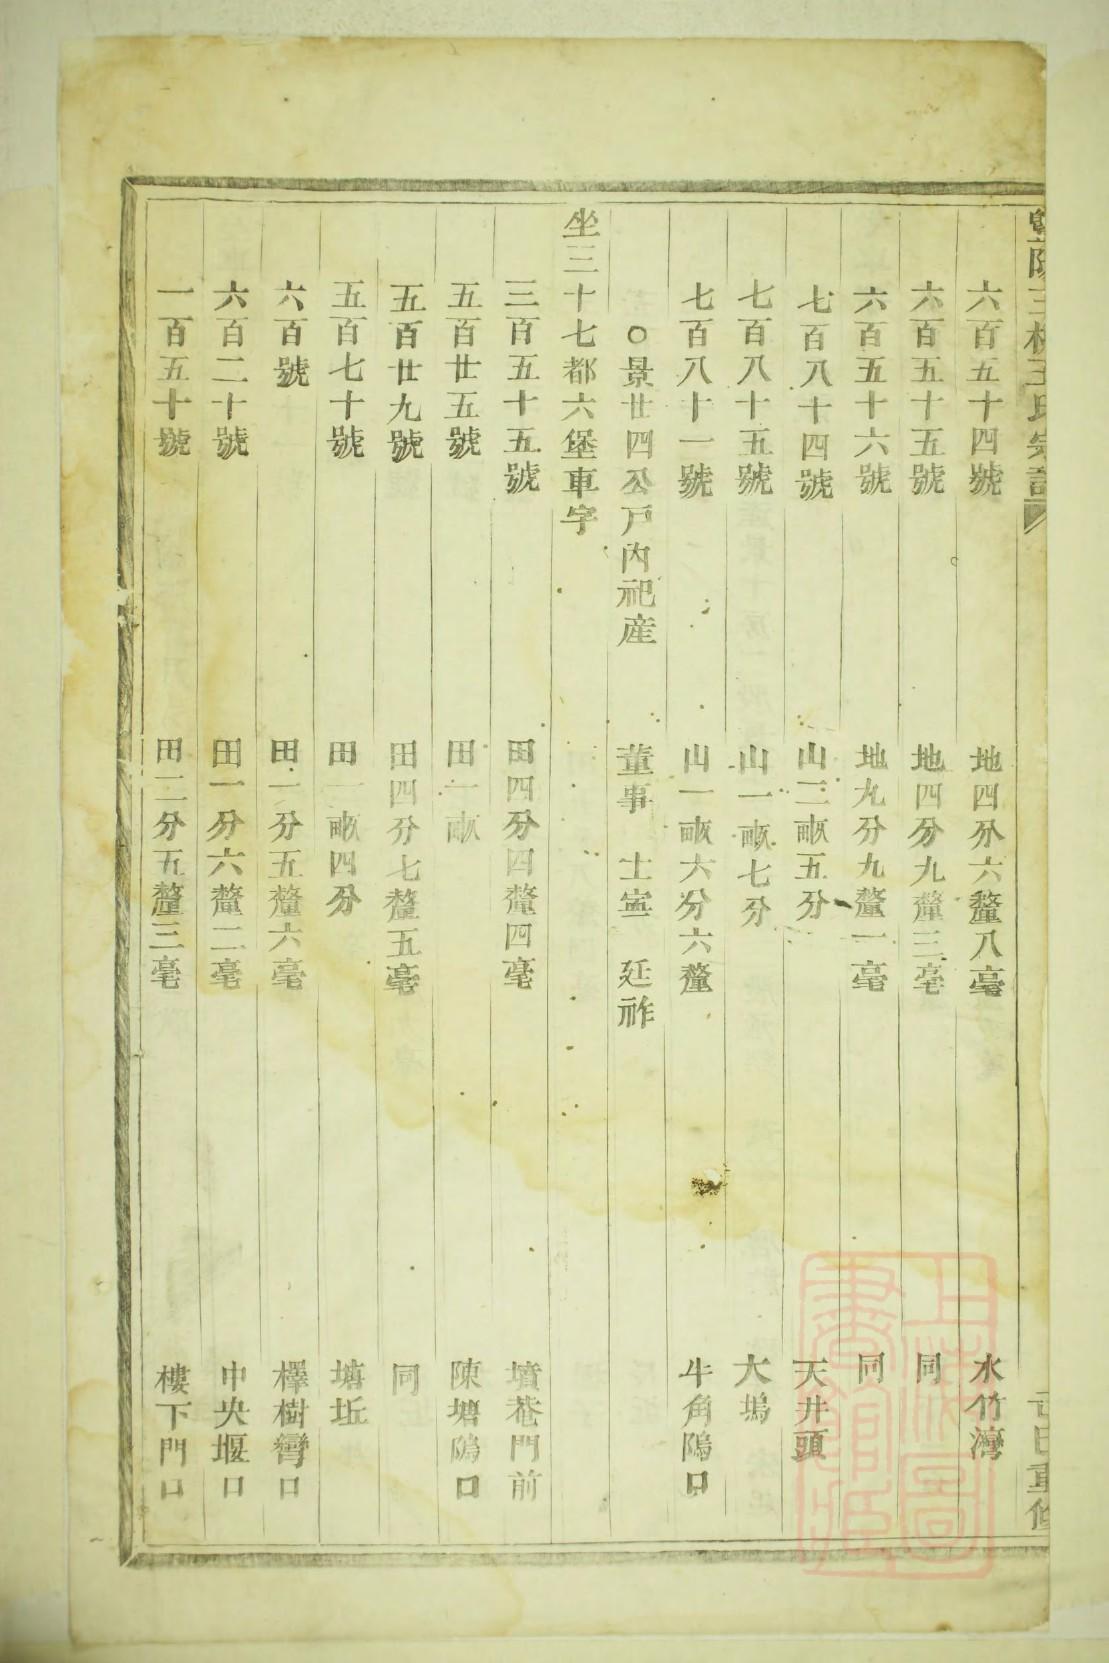 六百五十四號 地四分六釐八毫 水竹灣
六百五十五號 地四分九釐三毫 同
六百五十六號 地九分九釐一毫 同
七百八十四號 山二畝五分 天井頭
七百八十五號 山一畝七分 大塢
七百八十一號 山一畝六分六釐 牛角隖口
○景廿四公戶內祀產 董事 士寧 延祚
坐三十七都六堡車字
三百五十五號 田四分四釐四毫 墳菴門前
五百廿五號 田一畝 陳塘隖口
五百廿九號 田四分七釐五毫 同
五百七十號 田一畝四分 塘坵
六百號 田一分五釐六毫 檡樹彎口
六百二十號 田一分六釐二毫 中央堰口
一百五十號 田二分五釐三毫 樓下門口